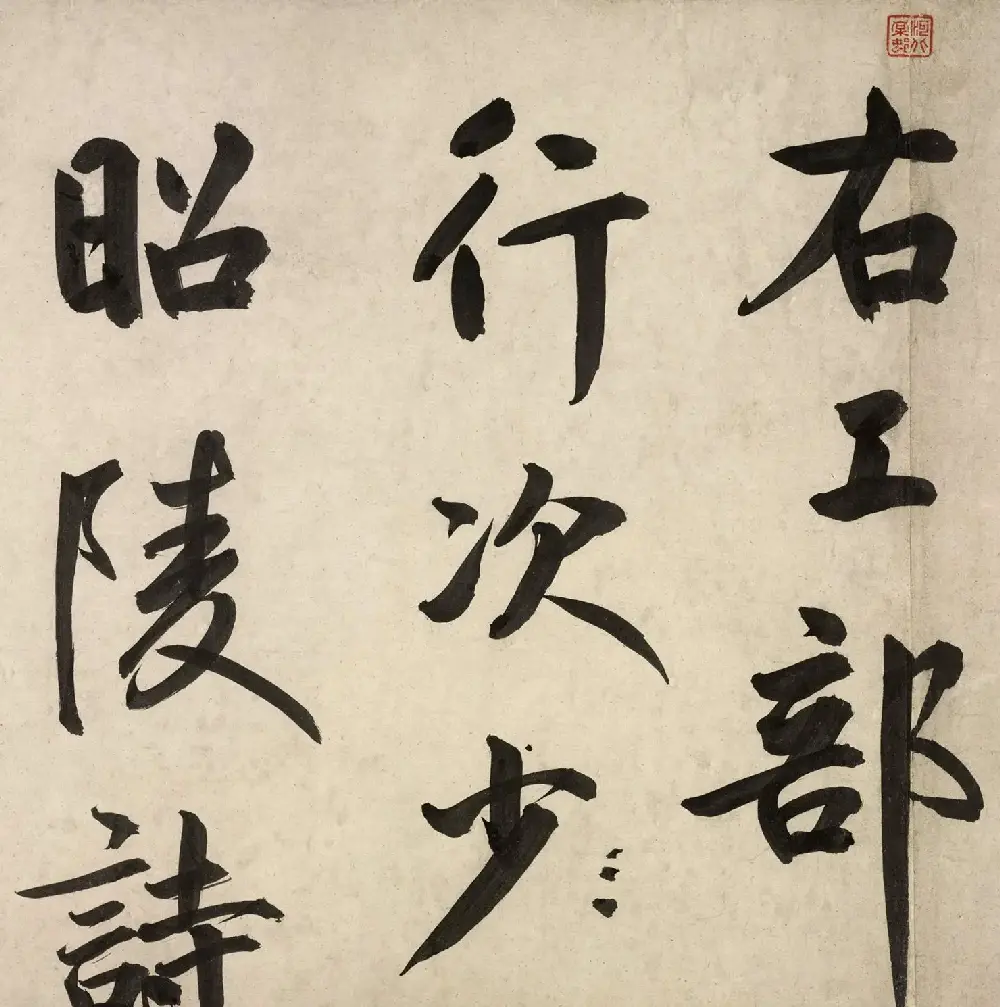 右工部
行次少
昭陵詩